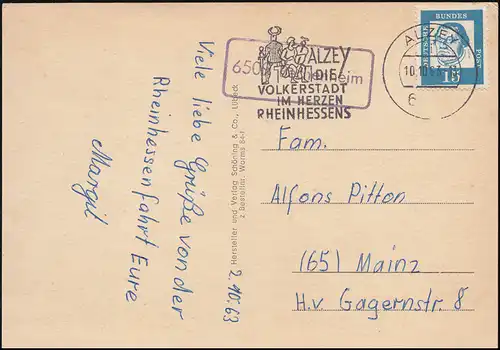 Viele liebe Grüße von der
Rheinhessenfahrt Eure
Margit
2.10.63
Hersteller und Verlag Schöning & Co., Lübeck
z Bestellnr. Worms 844
650
heim
ALZEY
DIE
VOLKERSTADT
IM HERZEN
RHEINHESSENS
ALZEY
10.10.63
6
DEUTSCHE
BUNDES
POST
15
Fam.
Alfons Pitton
(65) Mainz
H.v. Gagernstr. 8